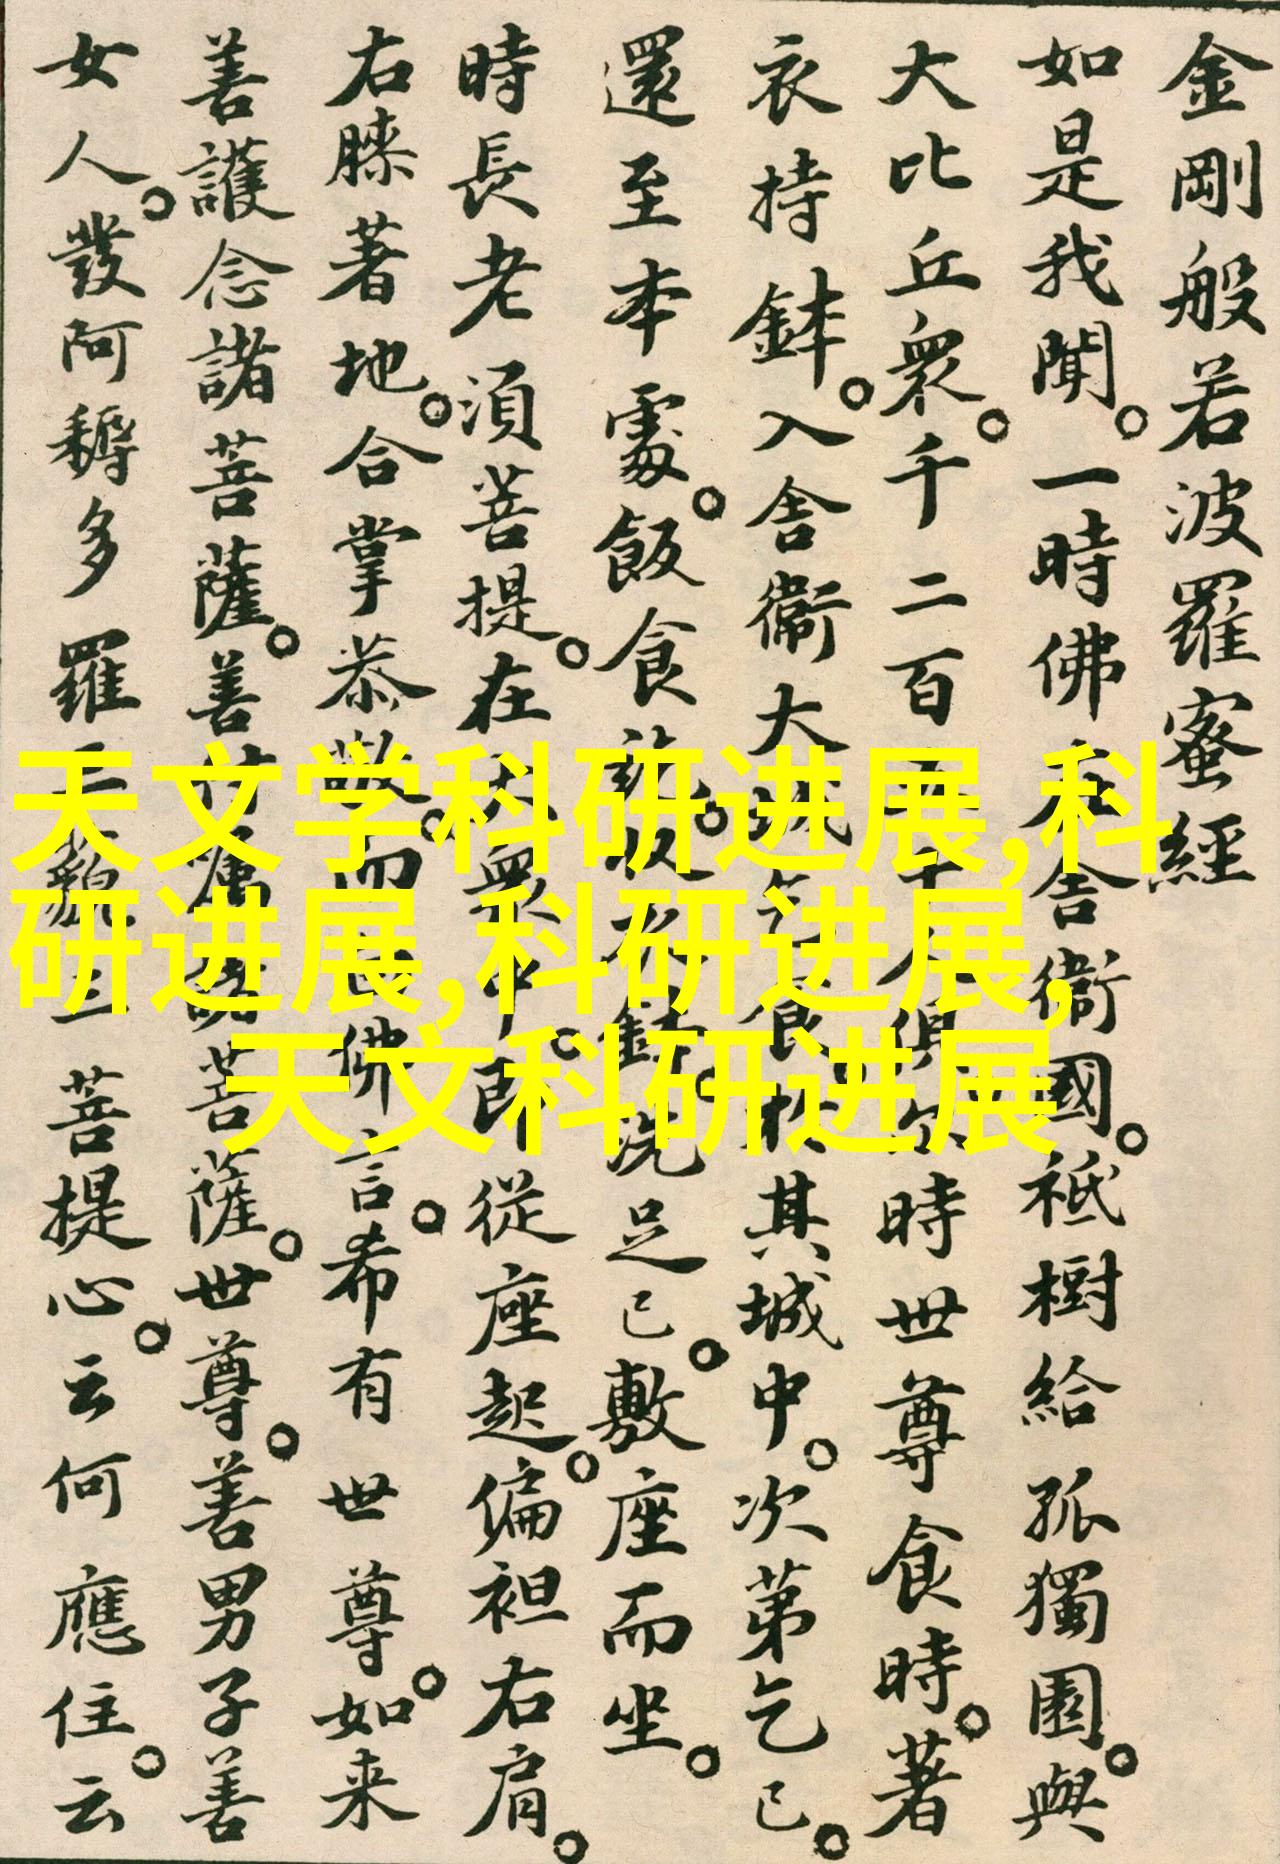 金剛般若波羅蜜經
如是我聞。一時佛在舍衛國。祇樹給孤獨園。與
大比丘衆。千二百五十人俱。尔時世尊食時。著
衣持鉢。入舍衛大城乞食。於其城中。次第乞已。
還至本處。飯食訖。收衣鉢。洗足已。敷座而坐。
時長老須菩提。在大衆中。即從座起。偏袒右肩。
右膝著地。合掌恭敬。而白佛言。希有世尊。如来
善護念諸菩薩。善付囑諸菩薩。世尊。善男子善
女人。發阿耨多羅三藐三菩提心。云何應住。云
天文学科研进展,科
研进展,科研进展,
天文科研进展